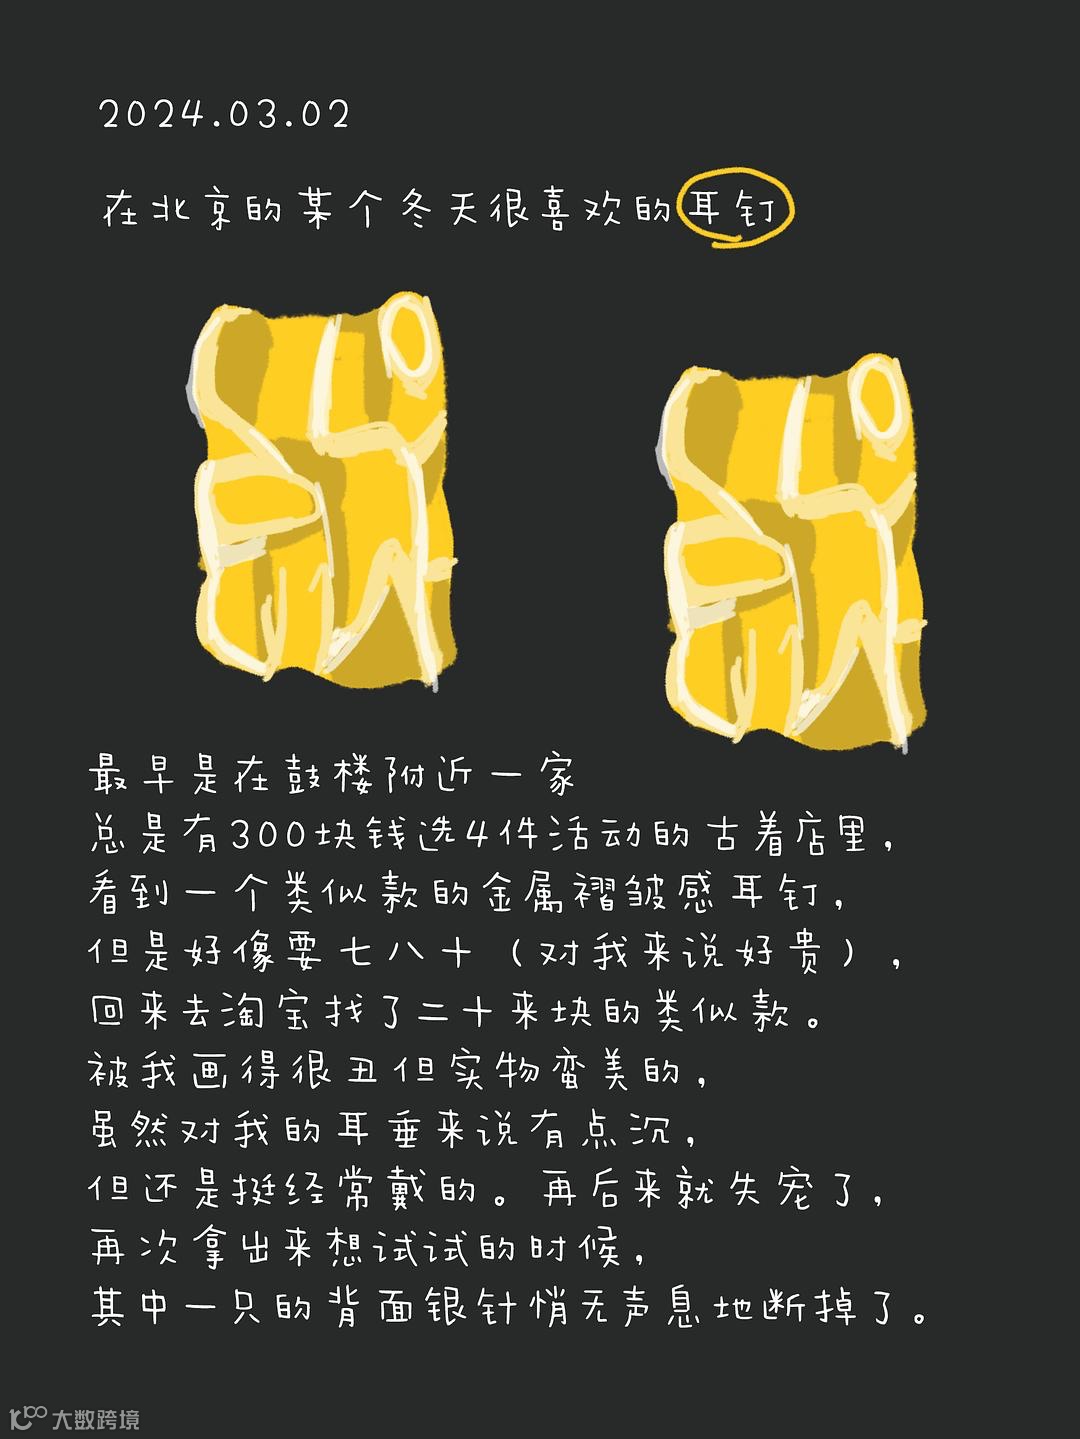 2024.03.02
在北京的某个冬天很喜欢的耳钉
最早是在鼓楼附近一家
总是有300块钱选4件活动的古着店里，
看到一个类似款的金属褶皱感耳钉，
但是好像要七八十（对我来说好贵），
回来去淘宝找了二十来块的类似款。
被我画得很丑但实物蛮美的，
虽然对我的耳垂来说有点沉，
但还是挺经常戴的。再后来就失宠了，
再次拿出来想试试的时候，
其中一只的背面银针悄无声息地断掉了。
大数跨境